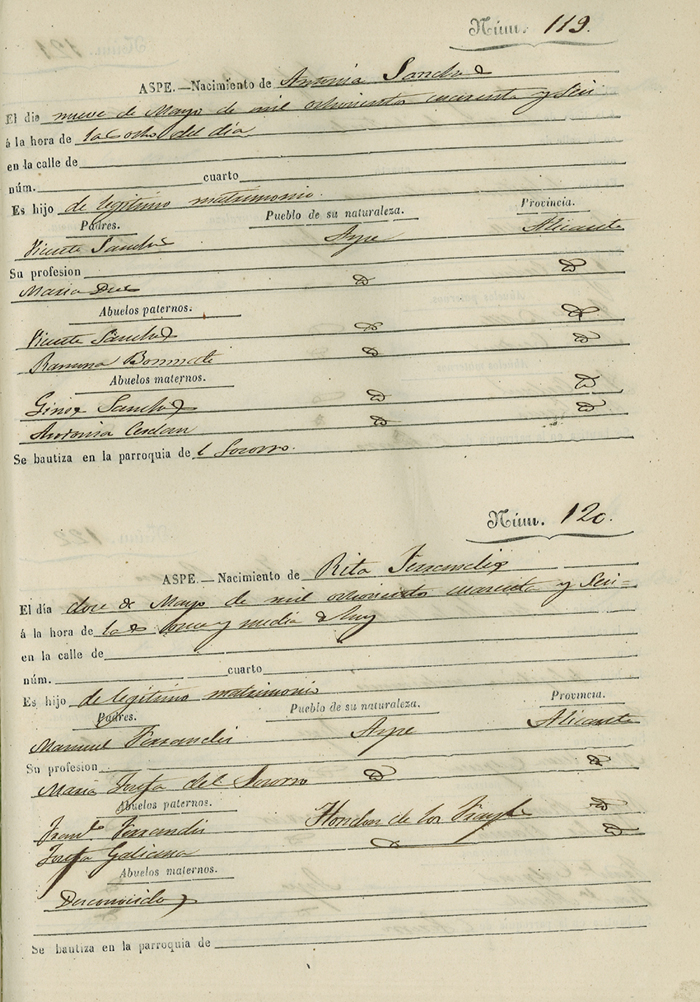 Núm. 119.
ASPE.—Nacimiento de Antonia Sanchez
El dia nueve de Mayo de mil ochocientos cuarenta y seis
á la hora de las ocho del día
en la calle de
núm. cuarto
Es hijo de legitimo matrimonio.
Padres. Pueblo de su naturaleza. Provincia.
Vicente Sanchez Aspe Alicante
Su profesion
Maria D D
Abuelos paternos.
Vicente Sanchez D D
Ramona Bonmati D D
Abuelos maternos.
Gines Sanchez D D
Antonia Cerdan D D
Se bautiza en la parroquia de l Socorro.
Núm. 120.
ASPE.—Nacimiento de Rita Ferrandiz
El día doce de Mayo de mil ochocientos cuarenta y seis
á la hora de las once y media de hoy
en la calle de
núm. cuarto
Es hijo de legitimo matrimonio
Padres. Pueblo de su naturaleza. Provincia.
Manuel Ferrandiz Aspe Alicante
Su profesion
Maria Josefa del Socorro D D
Abuelos paternos.
Franco Ferrandiz Hondon de los Frayles D
Josefa Galiana D D
Abuelos maternos.
Desconocidos
Se bautiza en la parroquia de